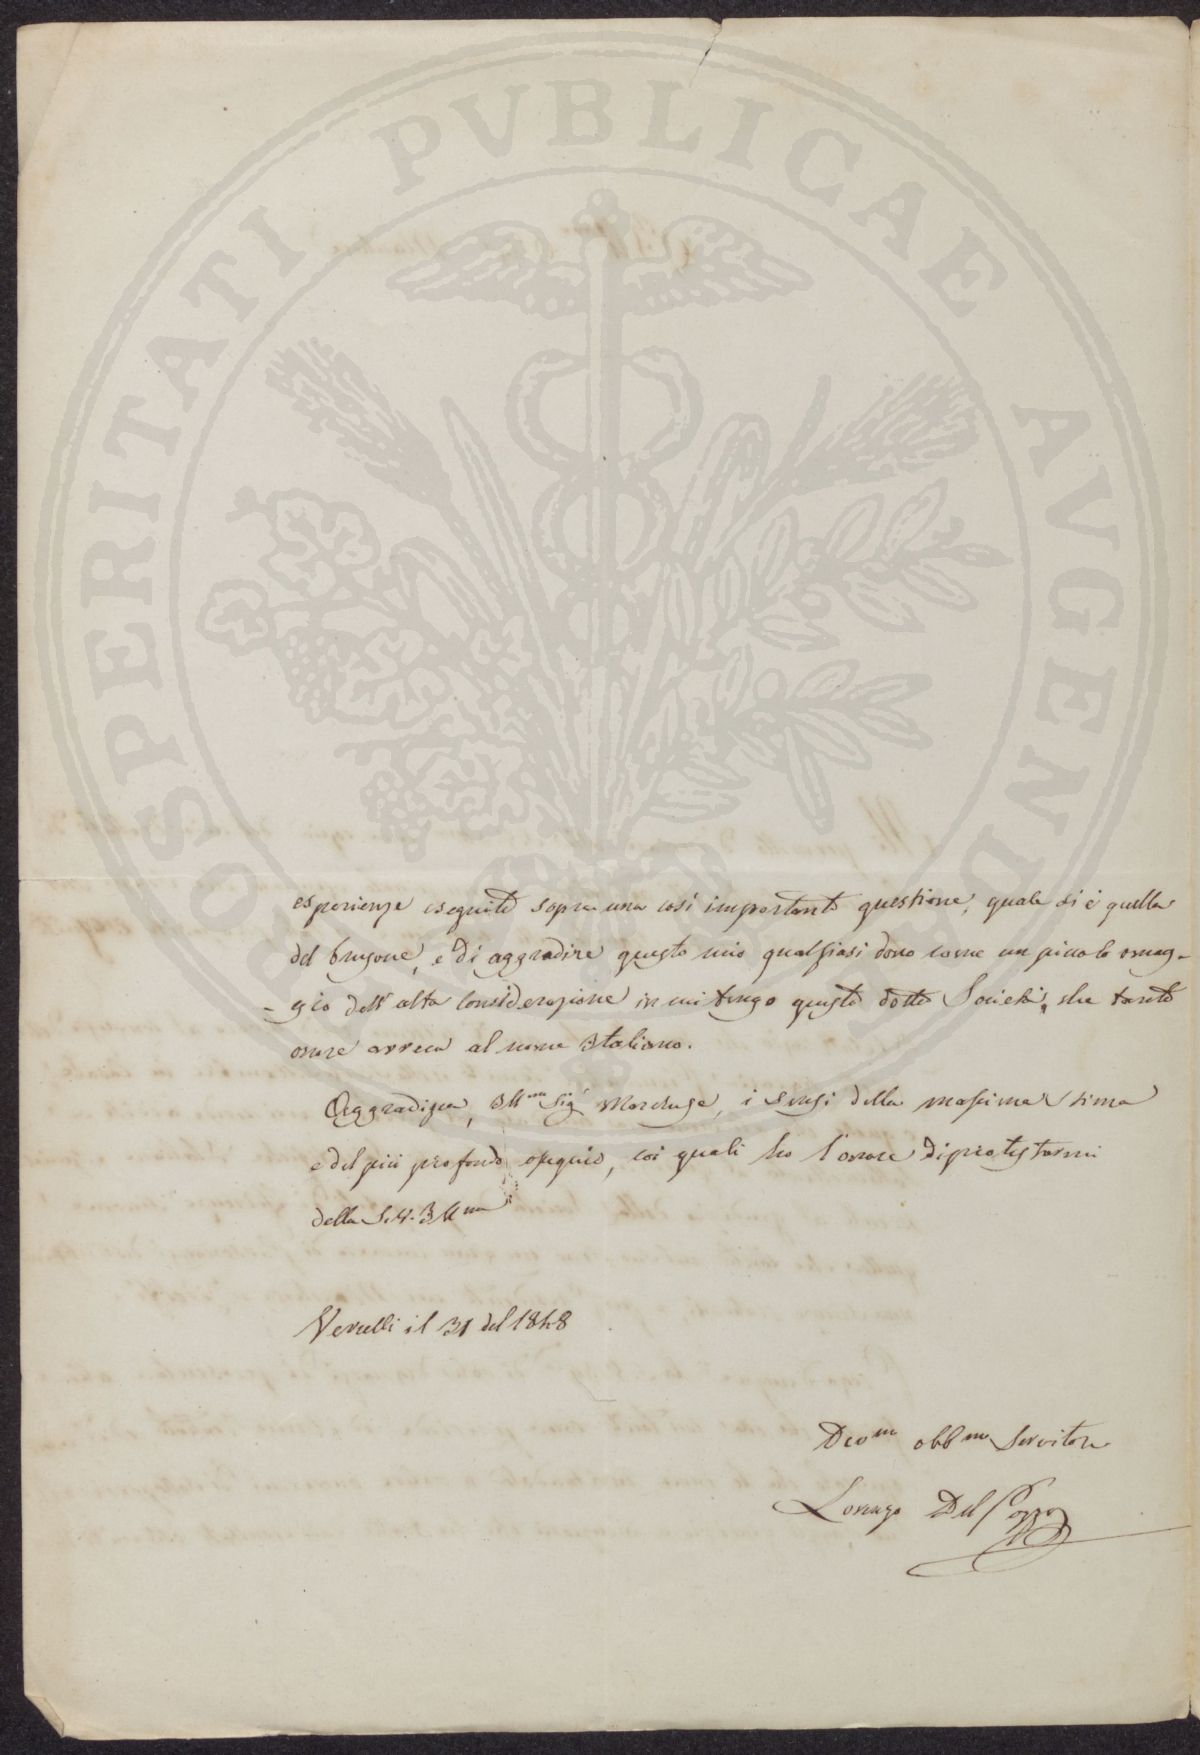 PROSPERITATI PVBLICAE AVGENDAE
esperienze eseguite sopra una così importante questione, quale si è quella
del brusone, e di aggradire questo mio qualsiasi dono come un piccolo omag-
-gio dell'alta considerazione in cui tengo questa dotta Società, che tanto
onore arreca al nome Italiano.
Aggradisca, Ill.mo Sig.r Marchese, i sensi della massima stima
e del più profondo ossequio, coi quali ho l'onore di protestarmi
della S.V. Ill.ma
Vercelli il 31 del 1848
Dev.mo obb.mo Servitore
Lorenzo Del Pozzo